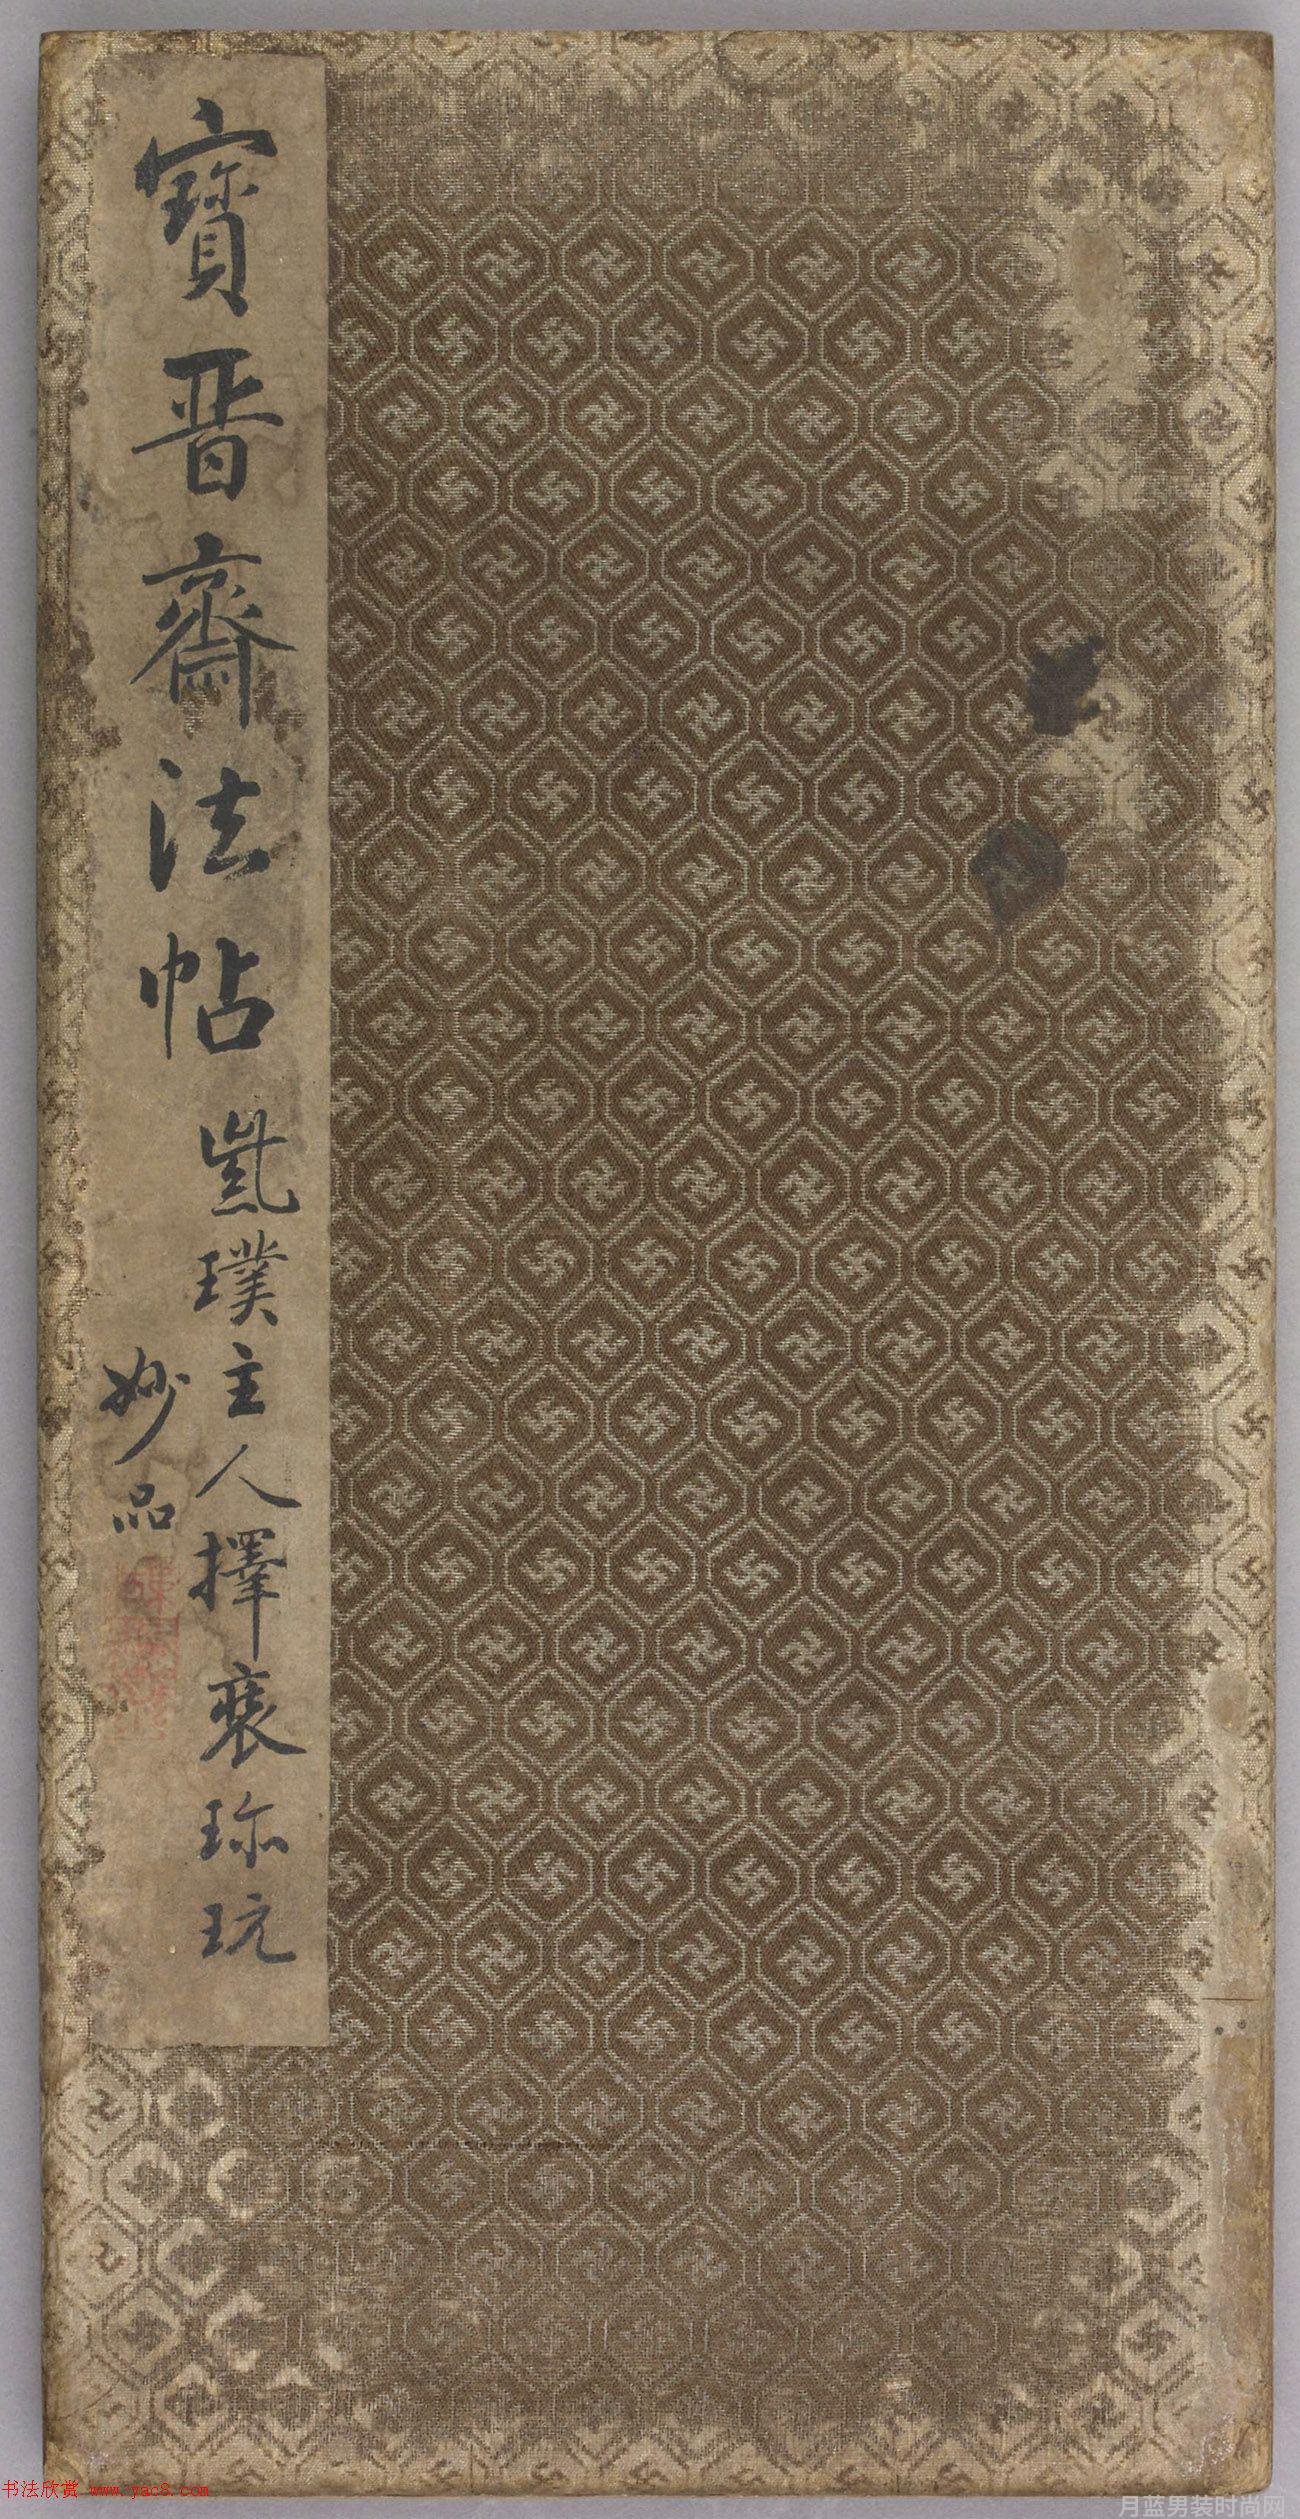 寶晉齋法帖
璞主人擇裘珎玩
妙品
书法欣赏 www.yac8.com
月蓝男装时尚网